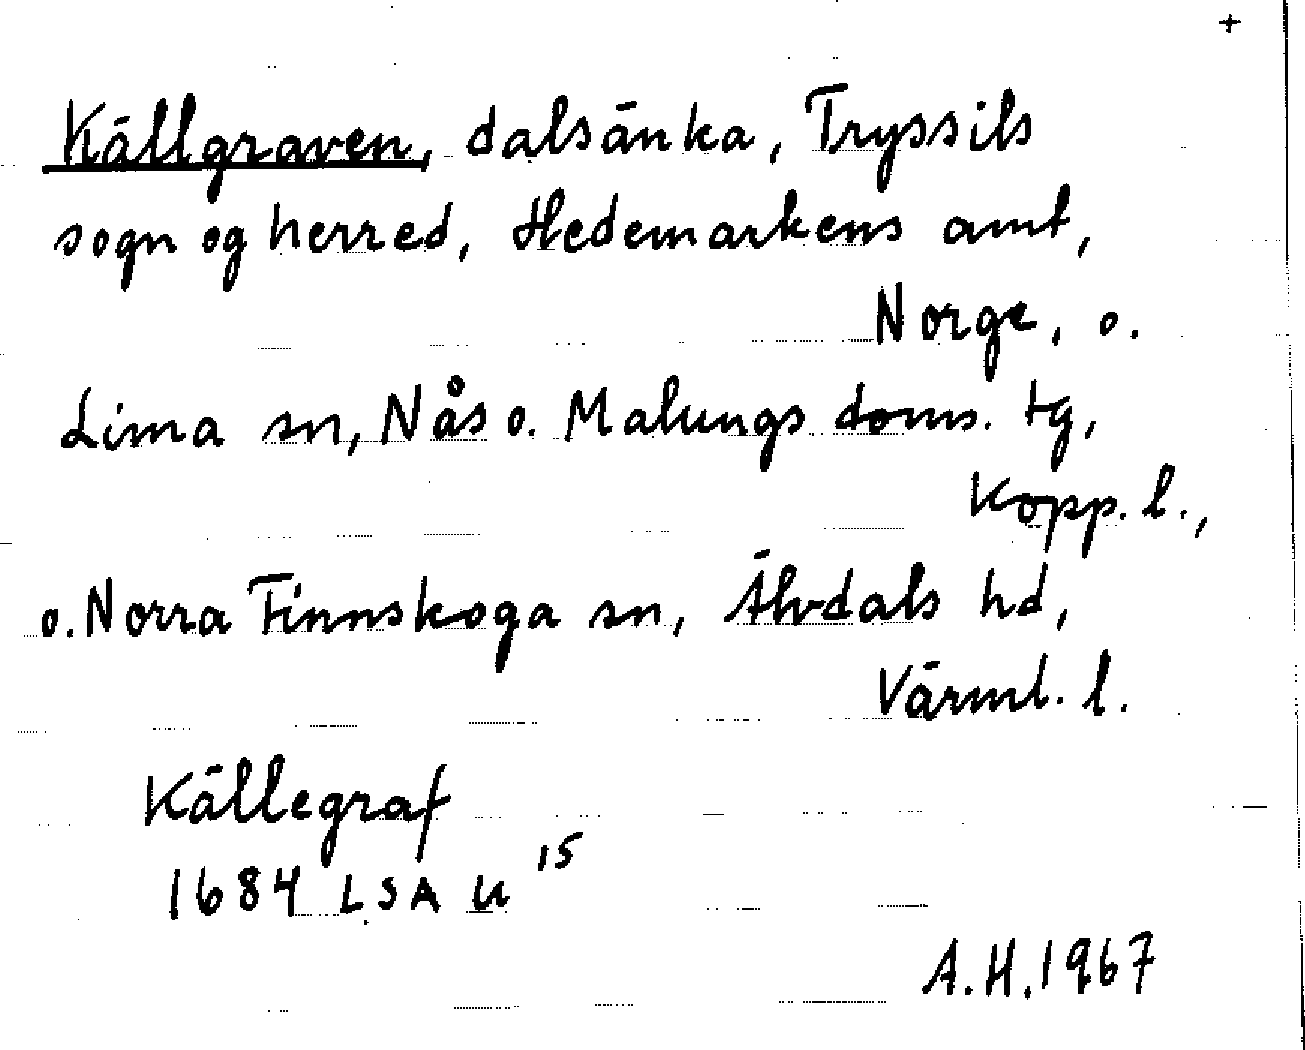 +
Källgraven, dalsänka, Tryssils
sogn og herred, Hedemarkens amt,
Norge, o.
Lima sn, Nås o. Malungs doms. tg,
Kopp. l.,
o. Norra Finnskoga sn, Älvdals hd,
Värml. l.
Källegraf
1684 LSA U 15
A.H. 1967